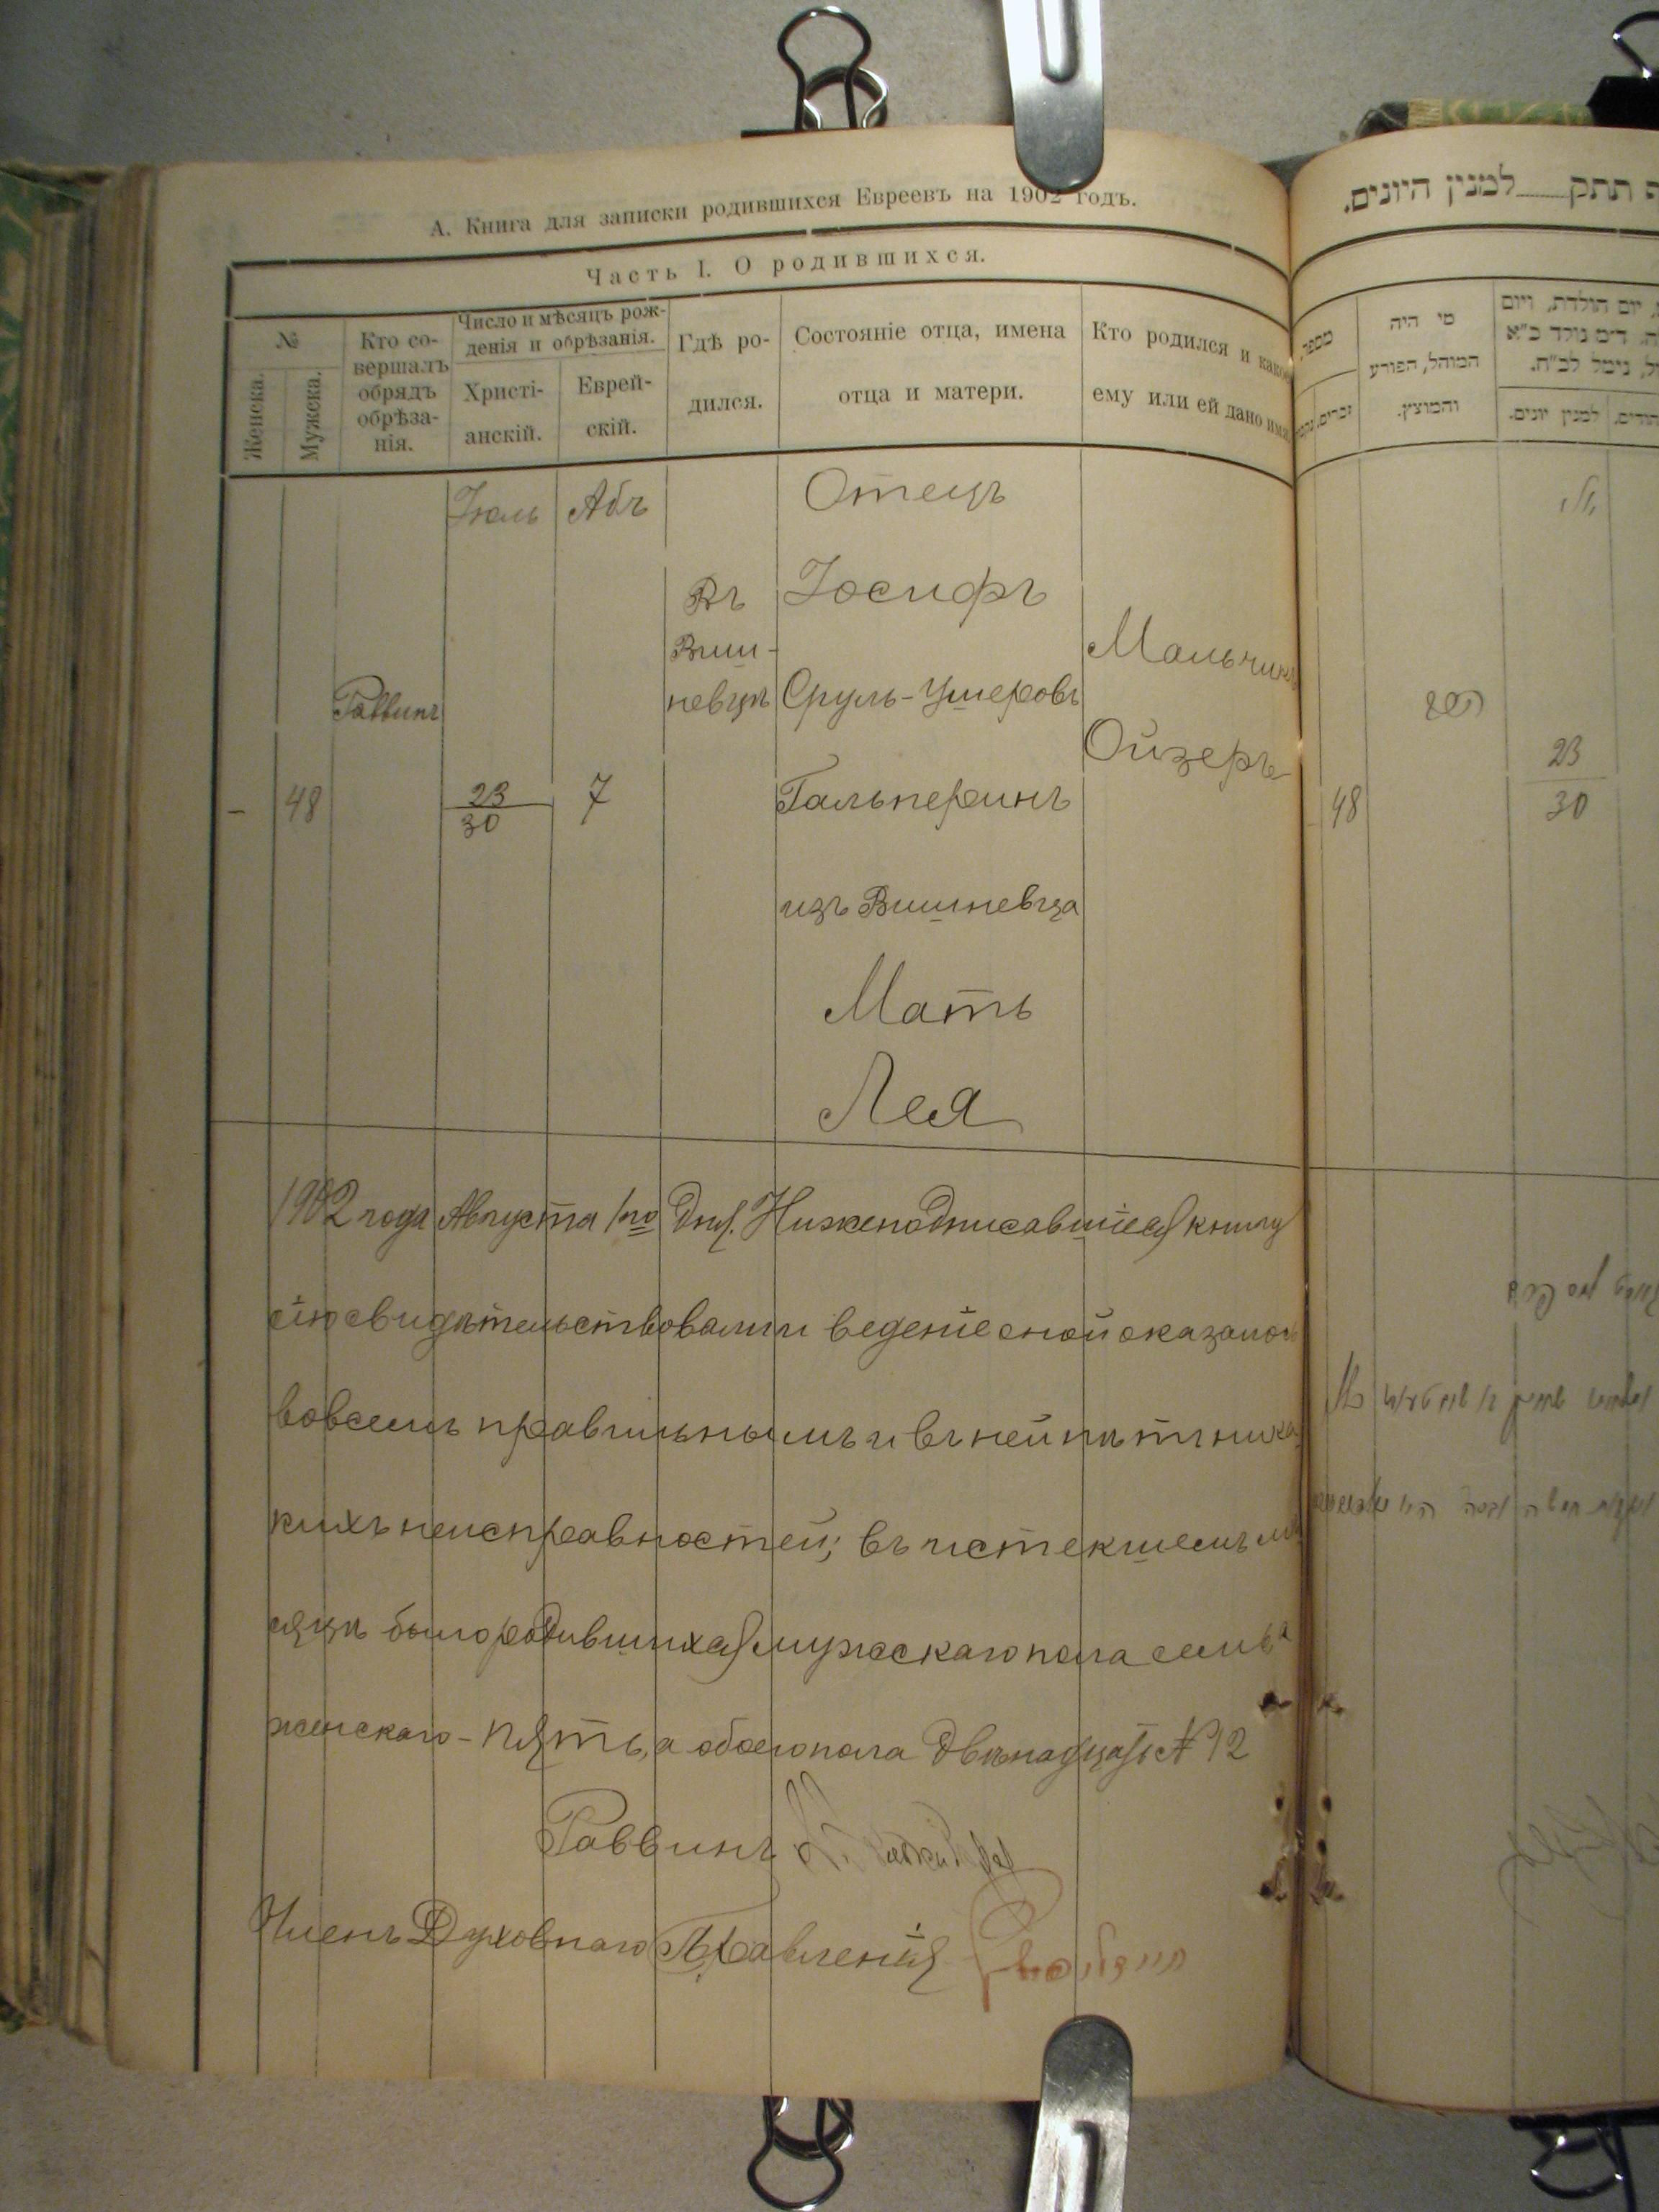 А. Книга для записки родившихся Евреевъ на 1902 годъ.
Часть I. О родившихся.
№
Женска.
Мужска.
Кто со-
вершалъ
обрядъ
обрѣза-
нія.
Число и мѣсяцъ рож-
денія и обрѣзанія.
Христі-
анскій.
Еврей-
скій.
Гдѣ ро-
дился.
Состояніе отца, имена
отца и матери.
Кто родился и какое
ему или ей дано имя
Іюль
Абъ
Отецъ
Въ
Виш-
невцѣ
Іосифъ
Сруль-Ушеровъ
Гальперинъ
изъ Вишневца
Мать
Лея
Мальчикъ
Ойзеръ
Раввинъ
–
48
23
30
7
1902 года Августа 1го дня. Нижеподписавшіеся книгу
сію свидѣтельствовали и веденіе оной оказалось
вовсемъ правильнымъ и въ ней нѣтъ ника
кихъ неисправностей; въ истекшемъ мѣ
сяцѣ было родившихся мужскаго пола семь а
женскаго - пять, а обоего пола двѣнадцать № 12
Раввинъ
Членъ Духовнаго Правленія
תתק למנין היונים.
מספר
זכרים
מי היה
המוהל, הפורע
והמוצץ.
יום הולדת, ויום
ד״מ נולד ב״א
נימל לב״ח.
למנין יונים.
48
23
30